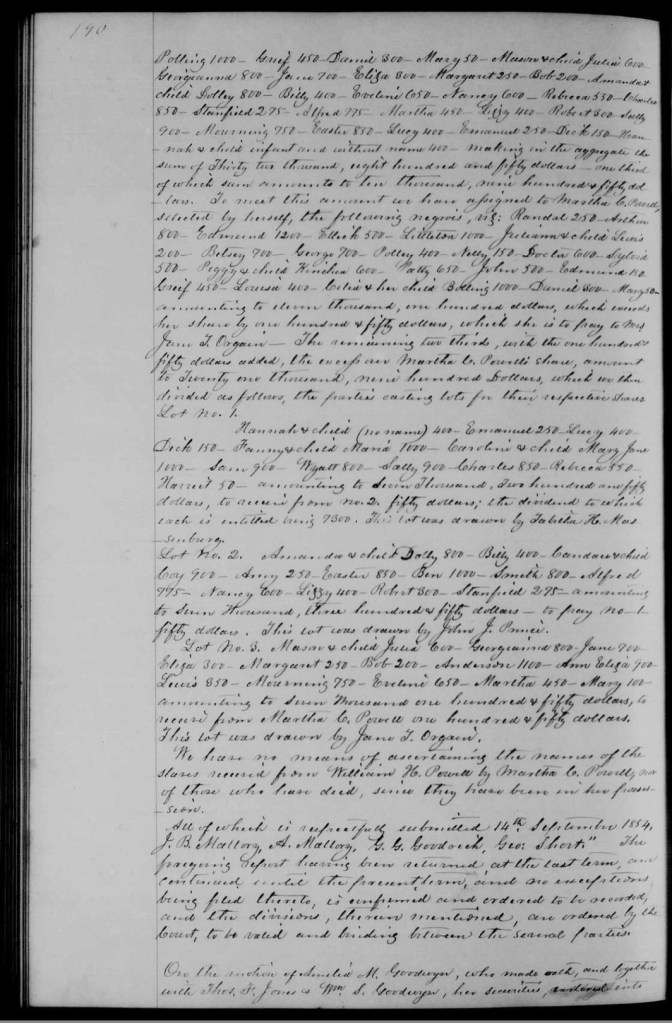 190
Polling 1000 - Greif 450 - Daniel 300 - Mary 50 - Mason & child Julia 600 -
Georgianna 800 - Jane 700 - Eliza 300 - Margaret 250 - Bob 200 - Amanda &
child Dolley 800 - Billy 400 - Eveline 650 - Nancy 600 - Rebecca 550 - Charles
850 - Stanfield 275 - Alfred 775 - Martha 450 - Lizzy 400 - Robert 300 - Sally
900 - Mourning 750 - Easter 850 - Lucy 400 - Emanuel 250 - Dick 150 - Han-
nah & child infant and without name 400 - making in the aggregate the
sum of Thirty two thousand, eight hundred and fifty dollars - one third
of which sum amounts to ten thousand, nine hundred & fifty dol
lars. To meet this amount we have assigned to Martha C. Powell,
selected by herself, the following negroes, viz: Randal 250 - Arthur
800 - Edmund 1200 - Ellick 500 - Littleton 1000 - Juliann & child Lewis
200 - Betsey 700 - George 700 - Polley 400 - Nelly 150 - Doctor 600 - Sylvia
500 - Peggy & child Kinchea 600 - Patty 650 - John 500 - Edmund 150
Greif 450 - Louisa 400 - Celia & her child Bolling 1000 - Daniel 300 - Mary 50 -
amounting to eleven thousand, one hundred dollars, which exceeds
her share by one hundred & fifty dollars, which she is to pay to Mrs
Jane T. Orgain - The remaining two thirds, with the one hundred &
fifty dollars added, the excess over Martha C. Powell's share, amount
to Twenty one thousand, nine hundred Dollars, which we then
divided as follows, the parties casting lots for their respective shares
Lot No. 1.
Hannah & child (no name) 400 - Emanuel 250 - Lucy 400 -
Dick 150 - Fanny & child Maria 1000 - Caroline & child Mary Jane
1000 - Sam 900 - Wyatt 800 - Sally 900 - Charles 850 - Rebecca 550 -
Harriet 50 - amounting to Seven Thousand, two hundred and fifty
dollars, to receive from no. 2. fifty dollars; the dividend to which
each is entitled being 7300. This lot was drawn by Tabitha H. Mas-
senburg.
Lot No. 2. Amanda & child Dolly 800 - Billy 400 - Candace & child
Coy 900 - Amy 250 - Easter 850 - Ben 1000 - Smith 800 - Alfred
775 - Nancy 600 - Lizzy 400 - Robert 300 - Stanfield 275 - amounting
to seven thousand, three hundred & fifty dollars - to pay no. 1.
fifty dollars. This lot was drawn by John J. Prince.
Lot No. 3. Mason & child Julia 600 - Georgianna 800 - Jane 700
Eliza 300 - Margaret 250 - Bob 200 - Anderson 1100 - Ann Eliza 900
Lewis 850 - Mourning 750 - Eveline 650 - Martha 450 - Mary 100 -
amounting to seven thousand one hundred & fifty dollars, to
receive from Martha C. Powell one hundred & fifty dollars.
This lot was drawn by Jane T. Orgain.
We have no means of ascertaining the names of the
slaves received from William H. Powell by Martha C. Powell, nor
of those who have died, since they have been in her posses-
sion.
All of which is respectfully submitted 14th September 1854,
J. B. Mallory, A. Mallory, G. G. Goodrich, Geo. Short." The
foregoing report having been returned at the last term, and
continued until the present term, and no exceptions
being filed thereto, is confirmed and ordered to be recorded,
and the divisions, therein mentioned, are ordered by the
Court, to be valid and binding between the several parties.
On the motion of Amelia M. Goodwyn, who made oath, and together
with Thos. F. Jones & Wm. S. Goodwyn, her securities, entered into